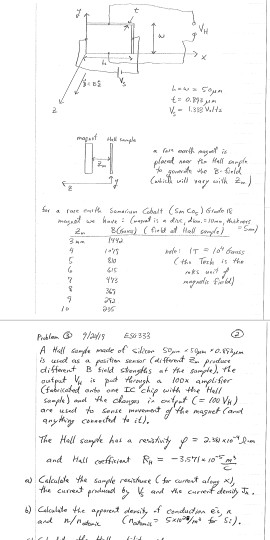 y
t
V_H
w
x
L
B = Bẑ
V_S
z
L = w = 50 μm
t = 0.893 μm
V_S = 1.333 Volts
magnet Hall sample
Z_m
z
y
a rare earth magnet is
placed near the Hall sample
to generate the B-field
(which will vary with Z_m)
For a rare earth Samarium Cobalt (Sm Co5) Grade 18
magnet we have: (magnet is a disc, diam. = 10mm, thickness
= 5mm)
Z_m B(Gauss) (field at Hall sample)
3 mm 1442
4 1079
5 810
6 615
7 473
8 369
9 292
10 235
note: 1T = 10^4 Gauss
(the Tesla is the
mks unit of
magnetic field)
Problem ③ 9/20/19 ESE 333 ②
A Hall sample made of silicon 50μm × 50μm × 0.893μm
is used as a position sensor (different Z_m produce
different B field strengths at the sample), the
output V_H is put through a 100x amplifier
(fabricated onto one IC chip with the Hall
sample) and the changes in output (= 100 V_H)
are used to sense movement of the magnet (and
anything connected to it).
The Hall sample has a resistivity ρ = Ωcm
and Hall coefficient R_H = -3.571×10^-5 m³/C
a) Calculate the sample resistance (for current along x),
the current produced by V_S and the current density J_x.
b) Calculate the apparent density of conduction e's, n
and n/n_atomic (n_atomic = 5×10^28/m³ for Si).